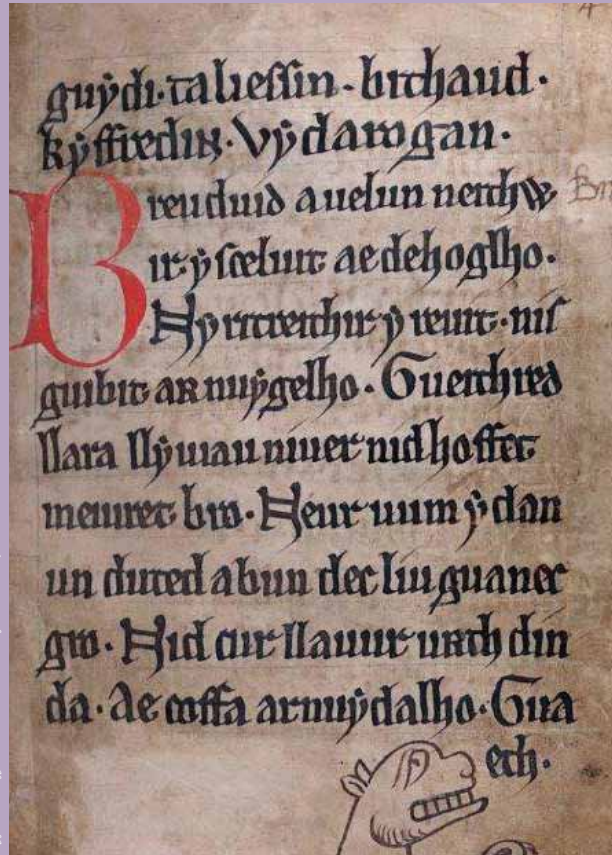 guẏdi·taliessin·bithaud·
kẏffredin·Vẏdarogan·
Breuduid a uelun neithw
ir·ẏ sceluit ae dehoglho.
Nẏ ritreithir ẏ reuit·nis
guibit ar nuẏgelho·Gueithred
llara llẏuiau niuer nid hoffet
meiuret bro·Neur uum ẏ dan
un duted a bun dec liu guanec
gro·Nid cur llauur urth din
da·Ae coffa ar nuẏ dalho·Gua
ech·